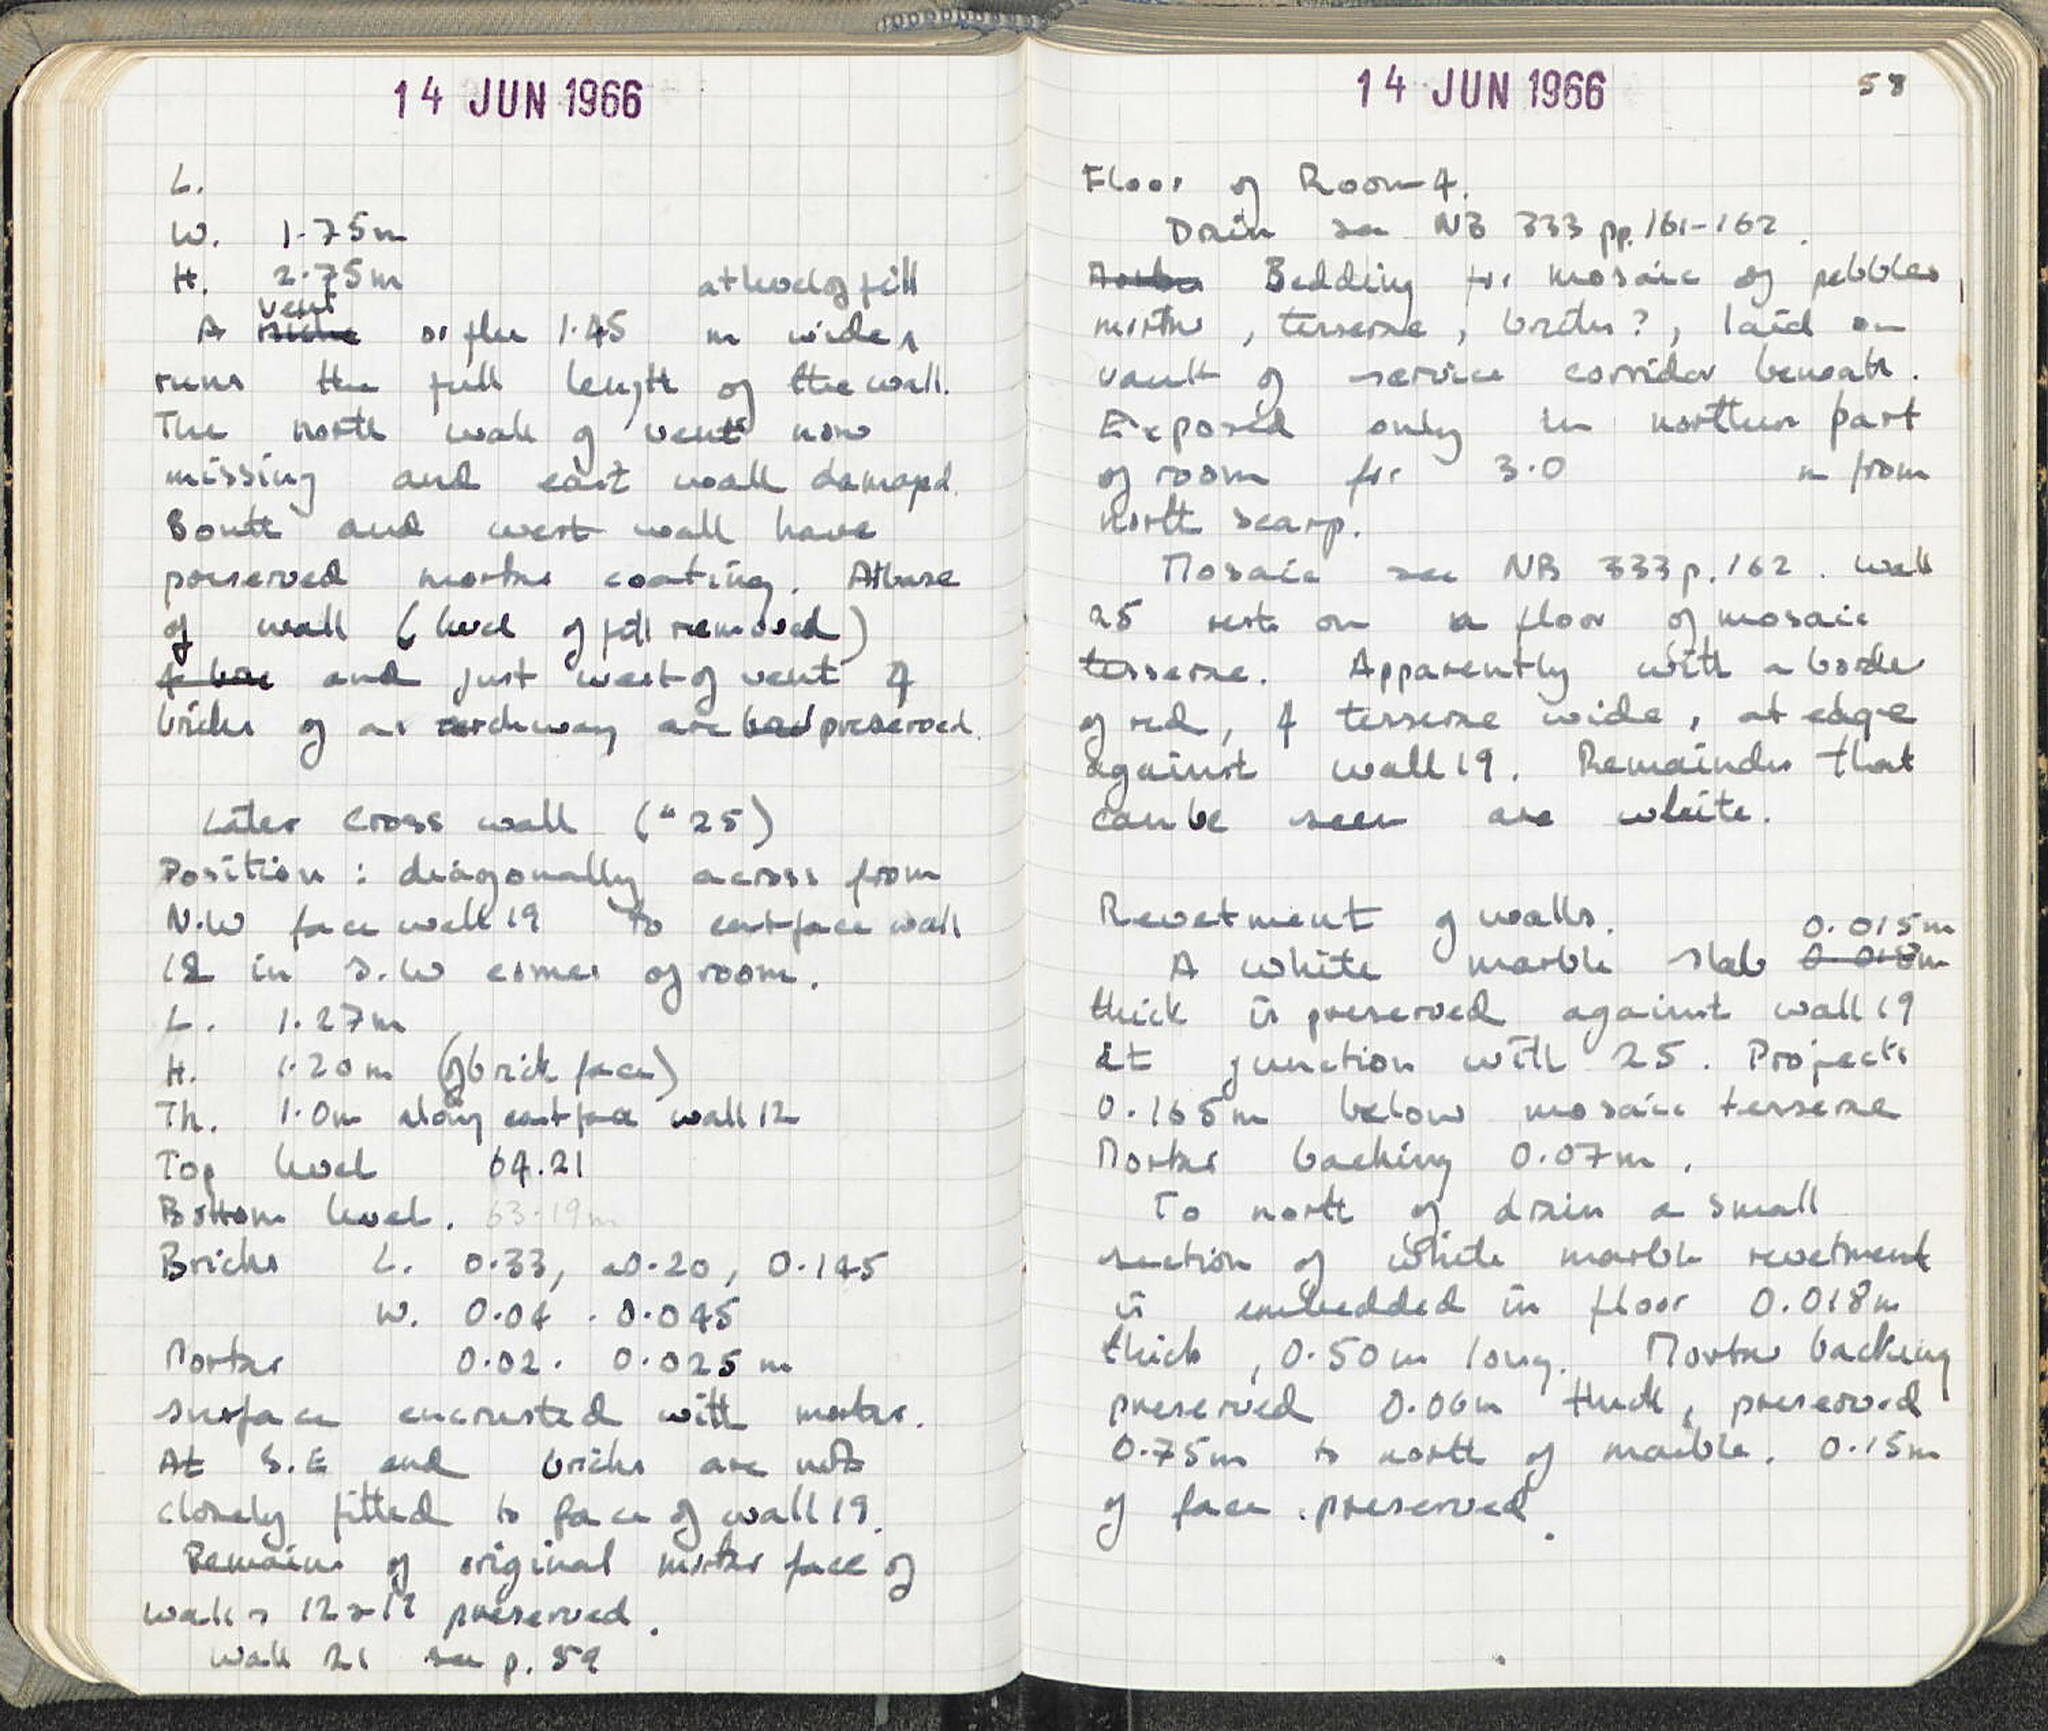 14 JUN 1966
L.
W. 1.75m
H. 2.75m at level of fill
vent
A niche or flue 1.45 m wide,
runs the full length of the wall.
The north wall of vent now
missing and east wall damaged.
South and west wall have
preserved mortar coating. At base
of wall (level of fill removed)
and just west of vent 4
bricks of an archway are preserved.
Later cross wall (#25)
Position: diagonally across from
N.W face wall 19 to east face wall
12 in S.W corner of room.
L. 1.27m
H. 1.20m (of brick face)
Th. 1.0m along east face wall 12
Top level 64.21
Bottom level. 63.19m
Bricks L. 0.33, 0.20, 0.145
W. 0.04 - 0.045
Mortar 0.02 - 0.025m
surface encrusted with mortar.
At S.E end bricks are not
closely fitted to face of wall 19.
Remains of original mortar face of
walls 12 & preserved.
Wall 21 see p. 59
14 JUN 1966
58
Floor of Room 4.
Drain see NB 333 pp. 161-162.
Mortar Bedding for mosaic of pebbles,
mortar, tesserae, bricks?, laid on
vault of service corridor beneath.
Exposed only in northern part
of room for 3.0 m from
north scarp.
Mosaic see NB 333 p. 162. Wall
25 rests on a floor of mosaic
tesserae. Apparently with a border
of red, 4 tesserae wide, at edge
against wall 19. Remainder that
can be seen are white.
Revetment of walls.
0.015m
A white marble slab 0.018m
thick is preserved against wall 19
at junction with 25. Projects
0.165m below mosaic tesserae
Mortar backing 0.07m.
To north of drain a small
section of white marble revetment
is embedded in floor 0.018m
thick, 0.50m long. Mortar backing
preserved 0.06m thick, preserved
0.75m to north of marble. 0.15m
of face preserved.